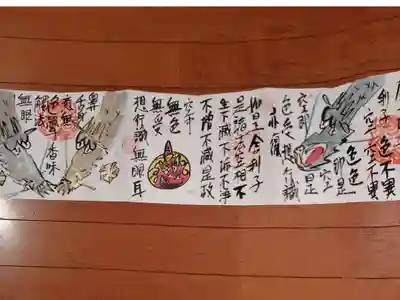 利子色不異
空空不異
色色即是
空空即是
色受想行識
亦復
如是舍利子
是諸法空相不
生不滅不垢不淨
不増不減是故
空中
無色
無受
想行識無眼耳
鼻
舌身
意無
色聲香味
觸法
無眼